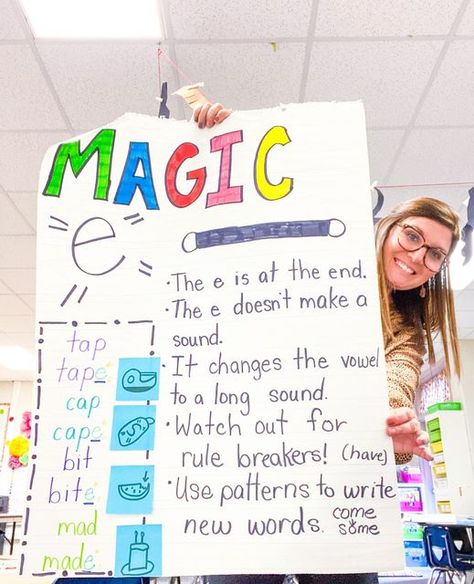 MAGIC
e
·The e is at the end.
·The e doesn't make a
sound.
·It changes the vowel
to a long sound.
·Watch out for
rule breakers! (have)
·Use patterns to write
new words. come
some
tap
tape
cap
cape
bit
bite
mad
made